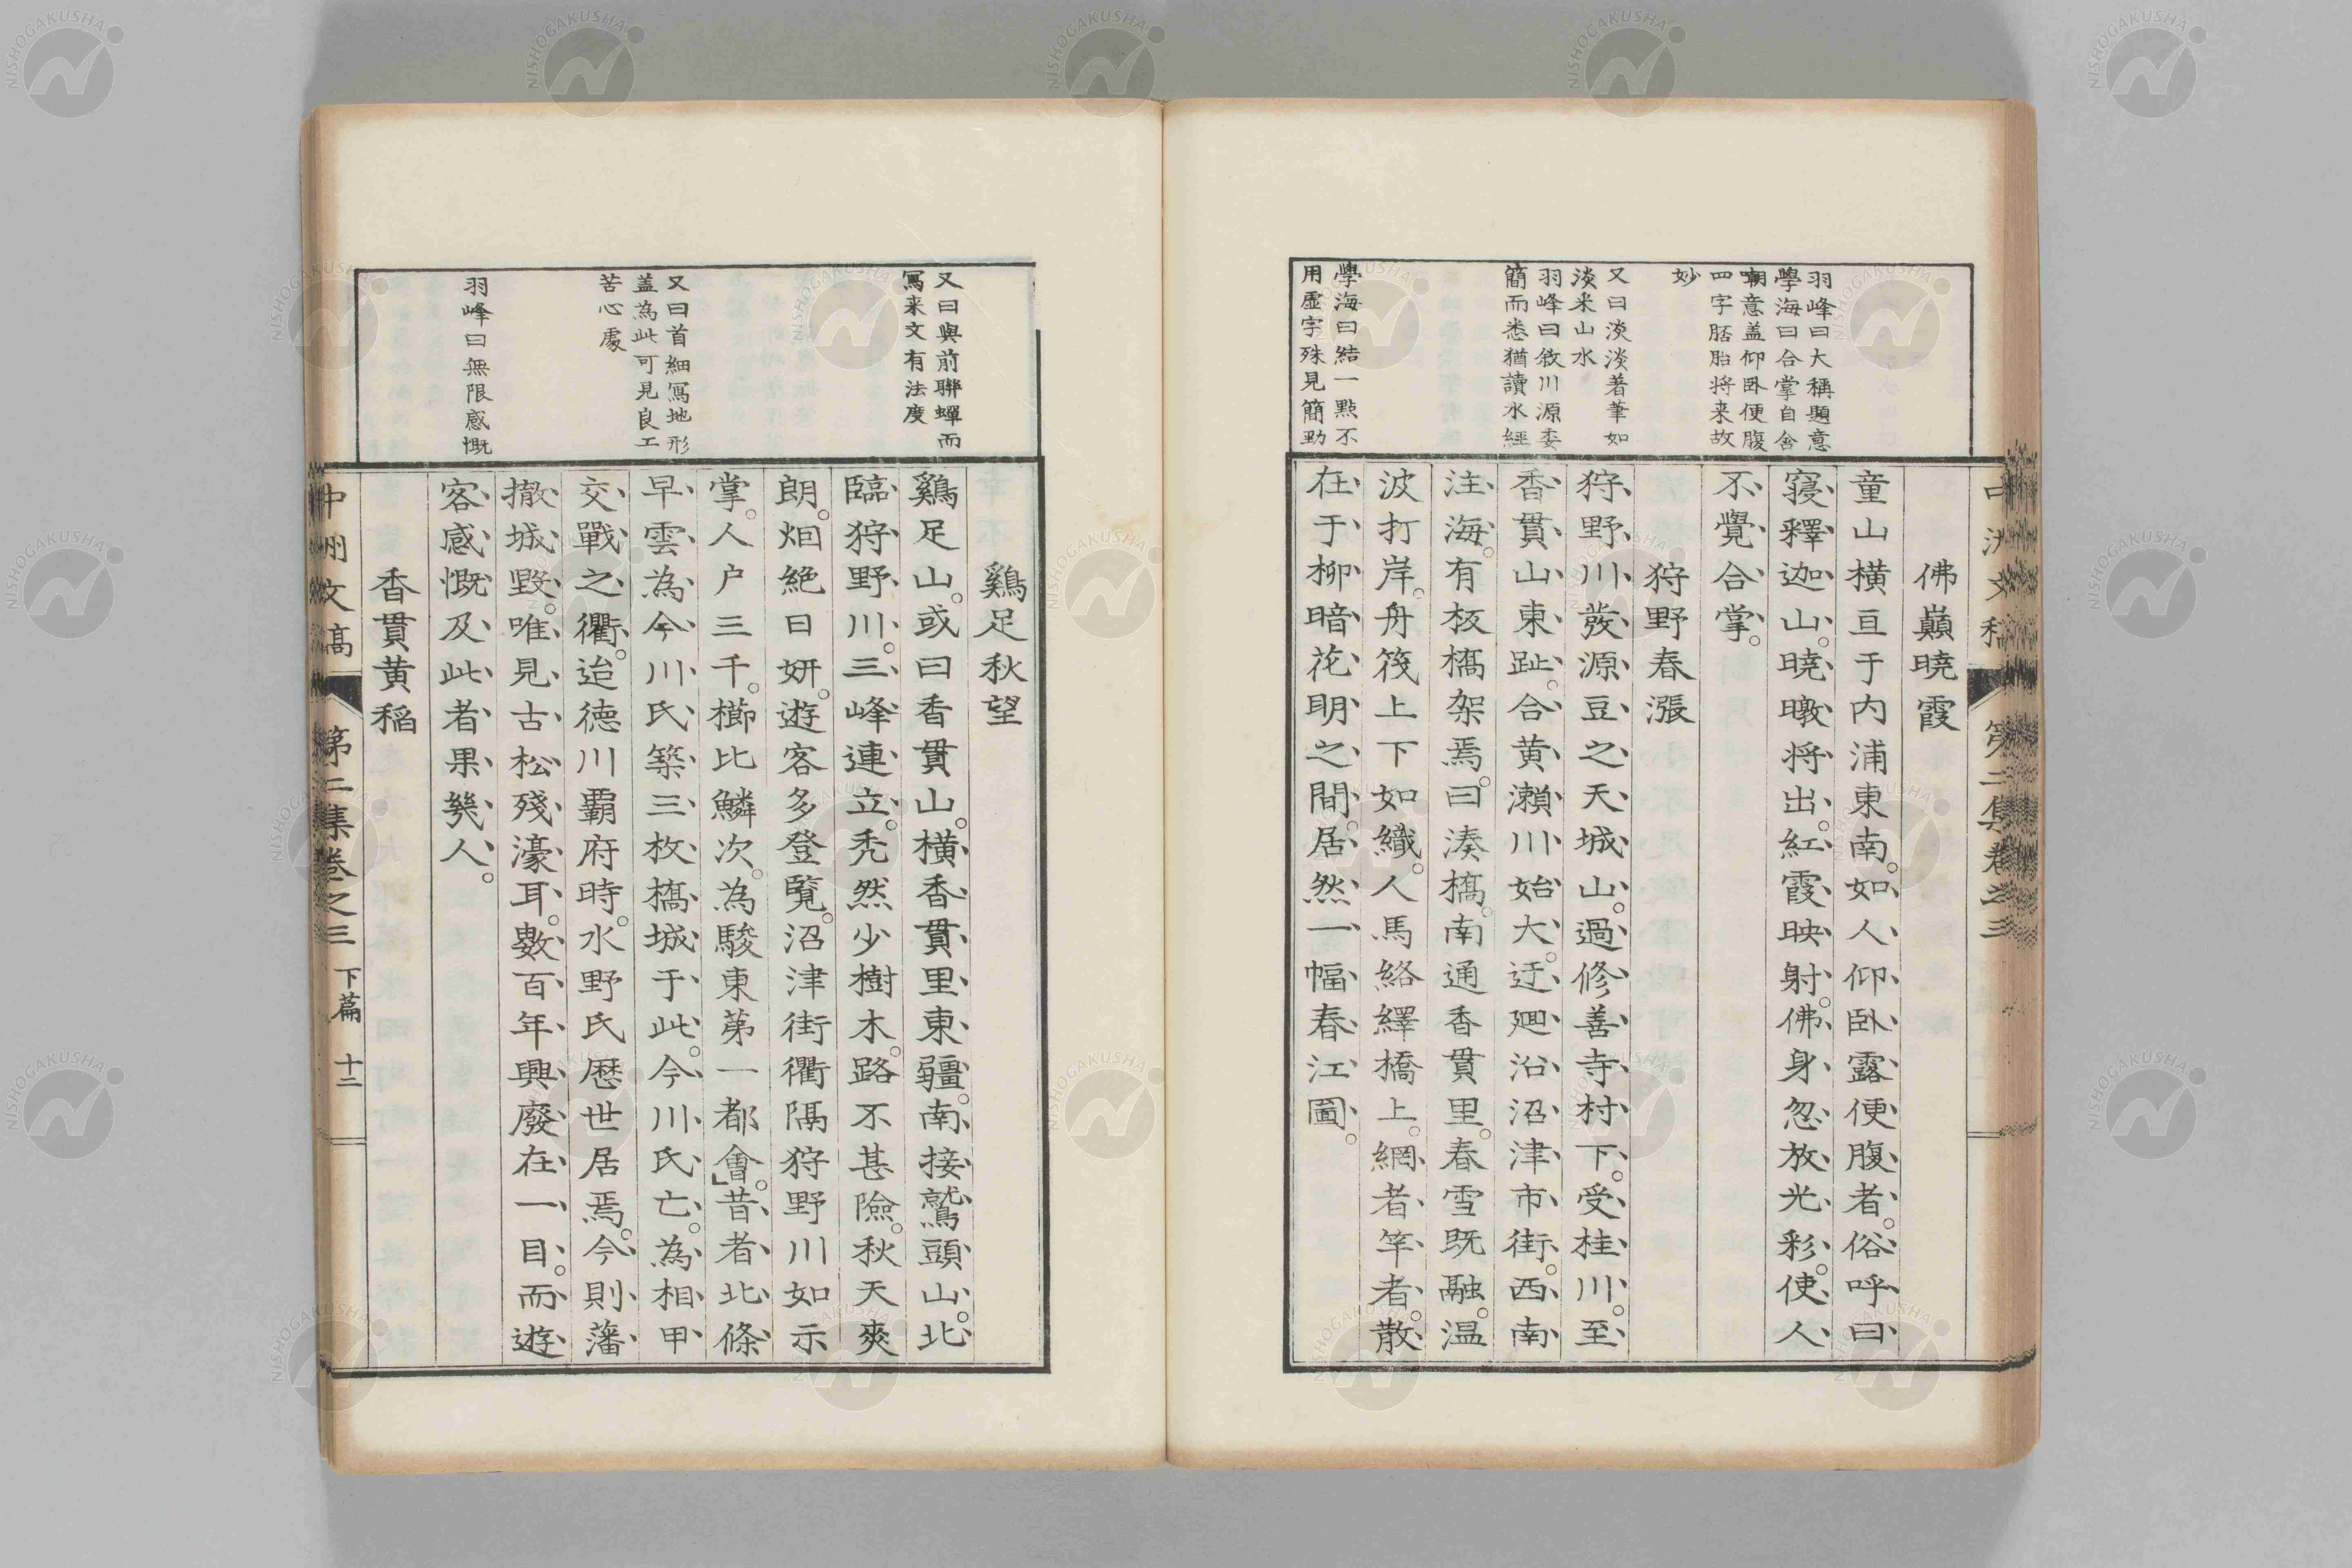 羽峰曰大稱題意
學海曰合掌自含
嘲意盖仰卧便腹
四字胚胎将来故
妙
又曰淡淡著筆如
淡米山水
羽峰曰敘川源委
簡而悉猶讀水經
學海曰結一點不
用虛字殊見簡勁
中洲文稿 第二集卷之三
佛巓曉霞
童山橫亘于内浦東南。如人仰卧露便腹者。俗呼曰
寢釋迦山。曉暾将出。紅霞映射。佛身忽放光彩。使人
不覺合掌。
狩野春漲
狩野川發源豆之天城山。過修善寺村下。受桂川。至
香貫山東趾。合黄瀨川始大。迂廻沿沼津市街。西南
注海。有板橋架焉。曰湊橋。南通香貫里。春雪既融。温
波打岸。舟筏上下如織。人馬絡繹橋上。網者竿者。散
在于柳暗花明之間。居然一幅春江圖。
又曰與前聯蟬而
寫来文有法度
又曰首細寫地形
盖為此可見良工
苦心處
羽峰曰無限感慨
鷄足秋望
鷄足山。或曰香貫山。橫香貫里東疆。南接鷲頭山。北
臨狩野川。三峰連立。禿然少樹木。路不甚險。秋天爽
朗。烟絶日妍。遊客多登覽。沼津街衢隔狩野川如示
掌。人户三千。櫛比鱗次。為駿東第一都會。」昔者北條
早雲為今川氏築三枚橋城于此。今川氏亡。為相甲
交戰之衢。迨德川覇府時。水野氏歷世居焉。今則藩
撤城毀。唯見古松殘濠耳。數百年興廢在一目。而遊
客感慨及此者果幾人。
香貫黄稲
中洲文稿 第二集卷之三 下篇 十二